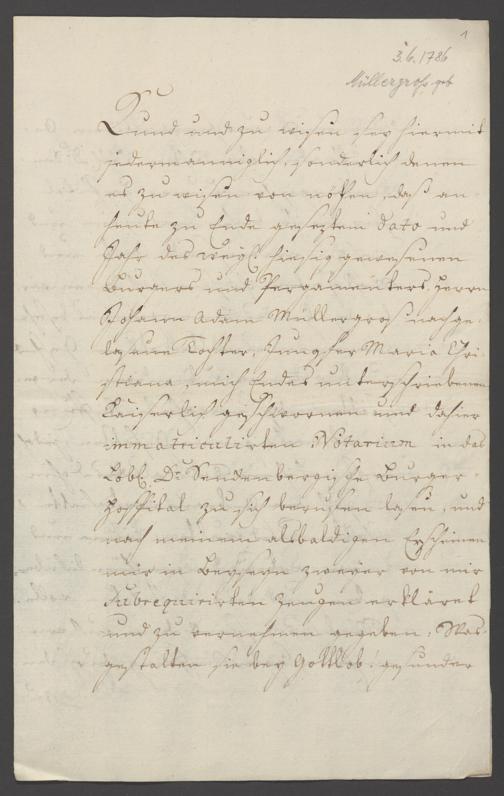 1
3.6.1786
Müllergross geb
Kund und zu wißen sey hiermit
jedermänniglich, sonderlich denen
es zu wißen von nöthen, daß an
heute zu Ende geseztem dato und
Jahr des weyl. hiesig gewesenen
Burgers und Pergamenters, Herrn
Johann Adam Müllergros nachge-
laßene Tochter, Jungfer Maria Chri-
stiana, mich Endes unterschriebenen
Kaiserlich geschwornen und dahier
immatriculirten Notarium in das
Löbl. Dr. Senckenbergische Burger-
hospital zu sich beruffen laßen, und
nach meinem alsbaldigen Erscheinen
mir in Beyseyn zweyer von mir
subrequirirten Zeugen erkläret
und zu vernehmen gegeben, Was-
gestalten sie bey Gottlob! gesunder